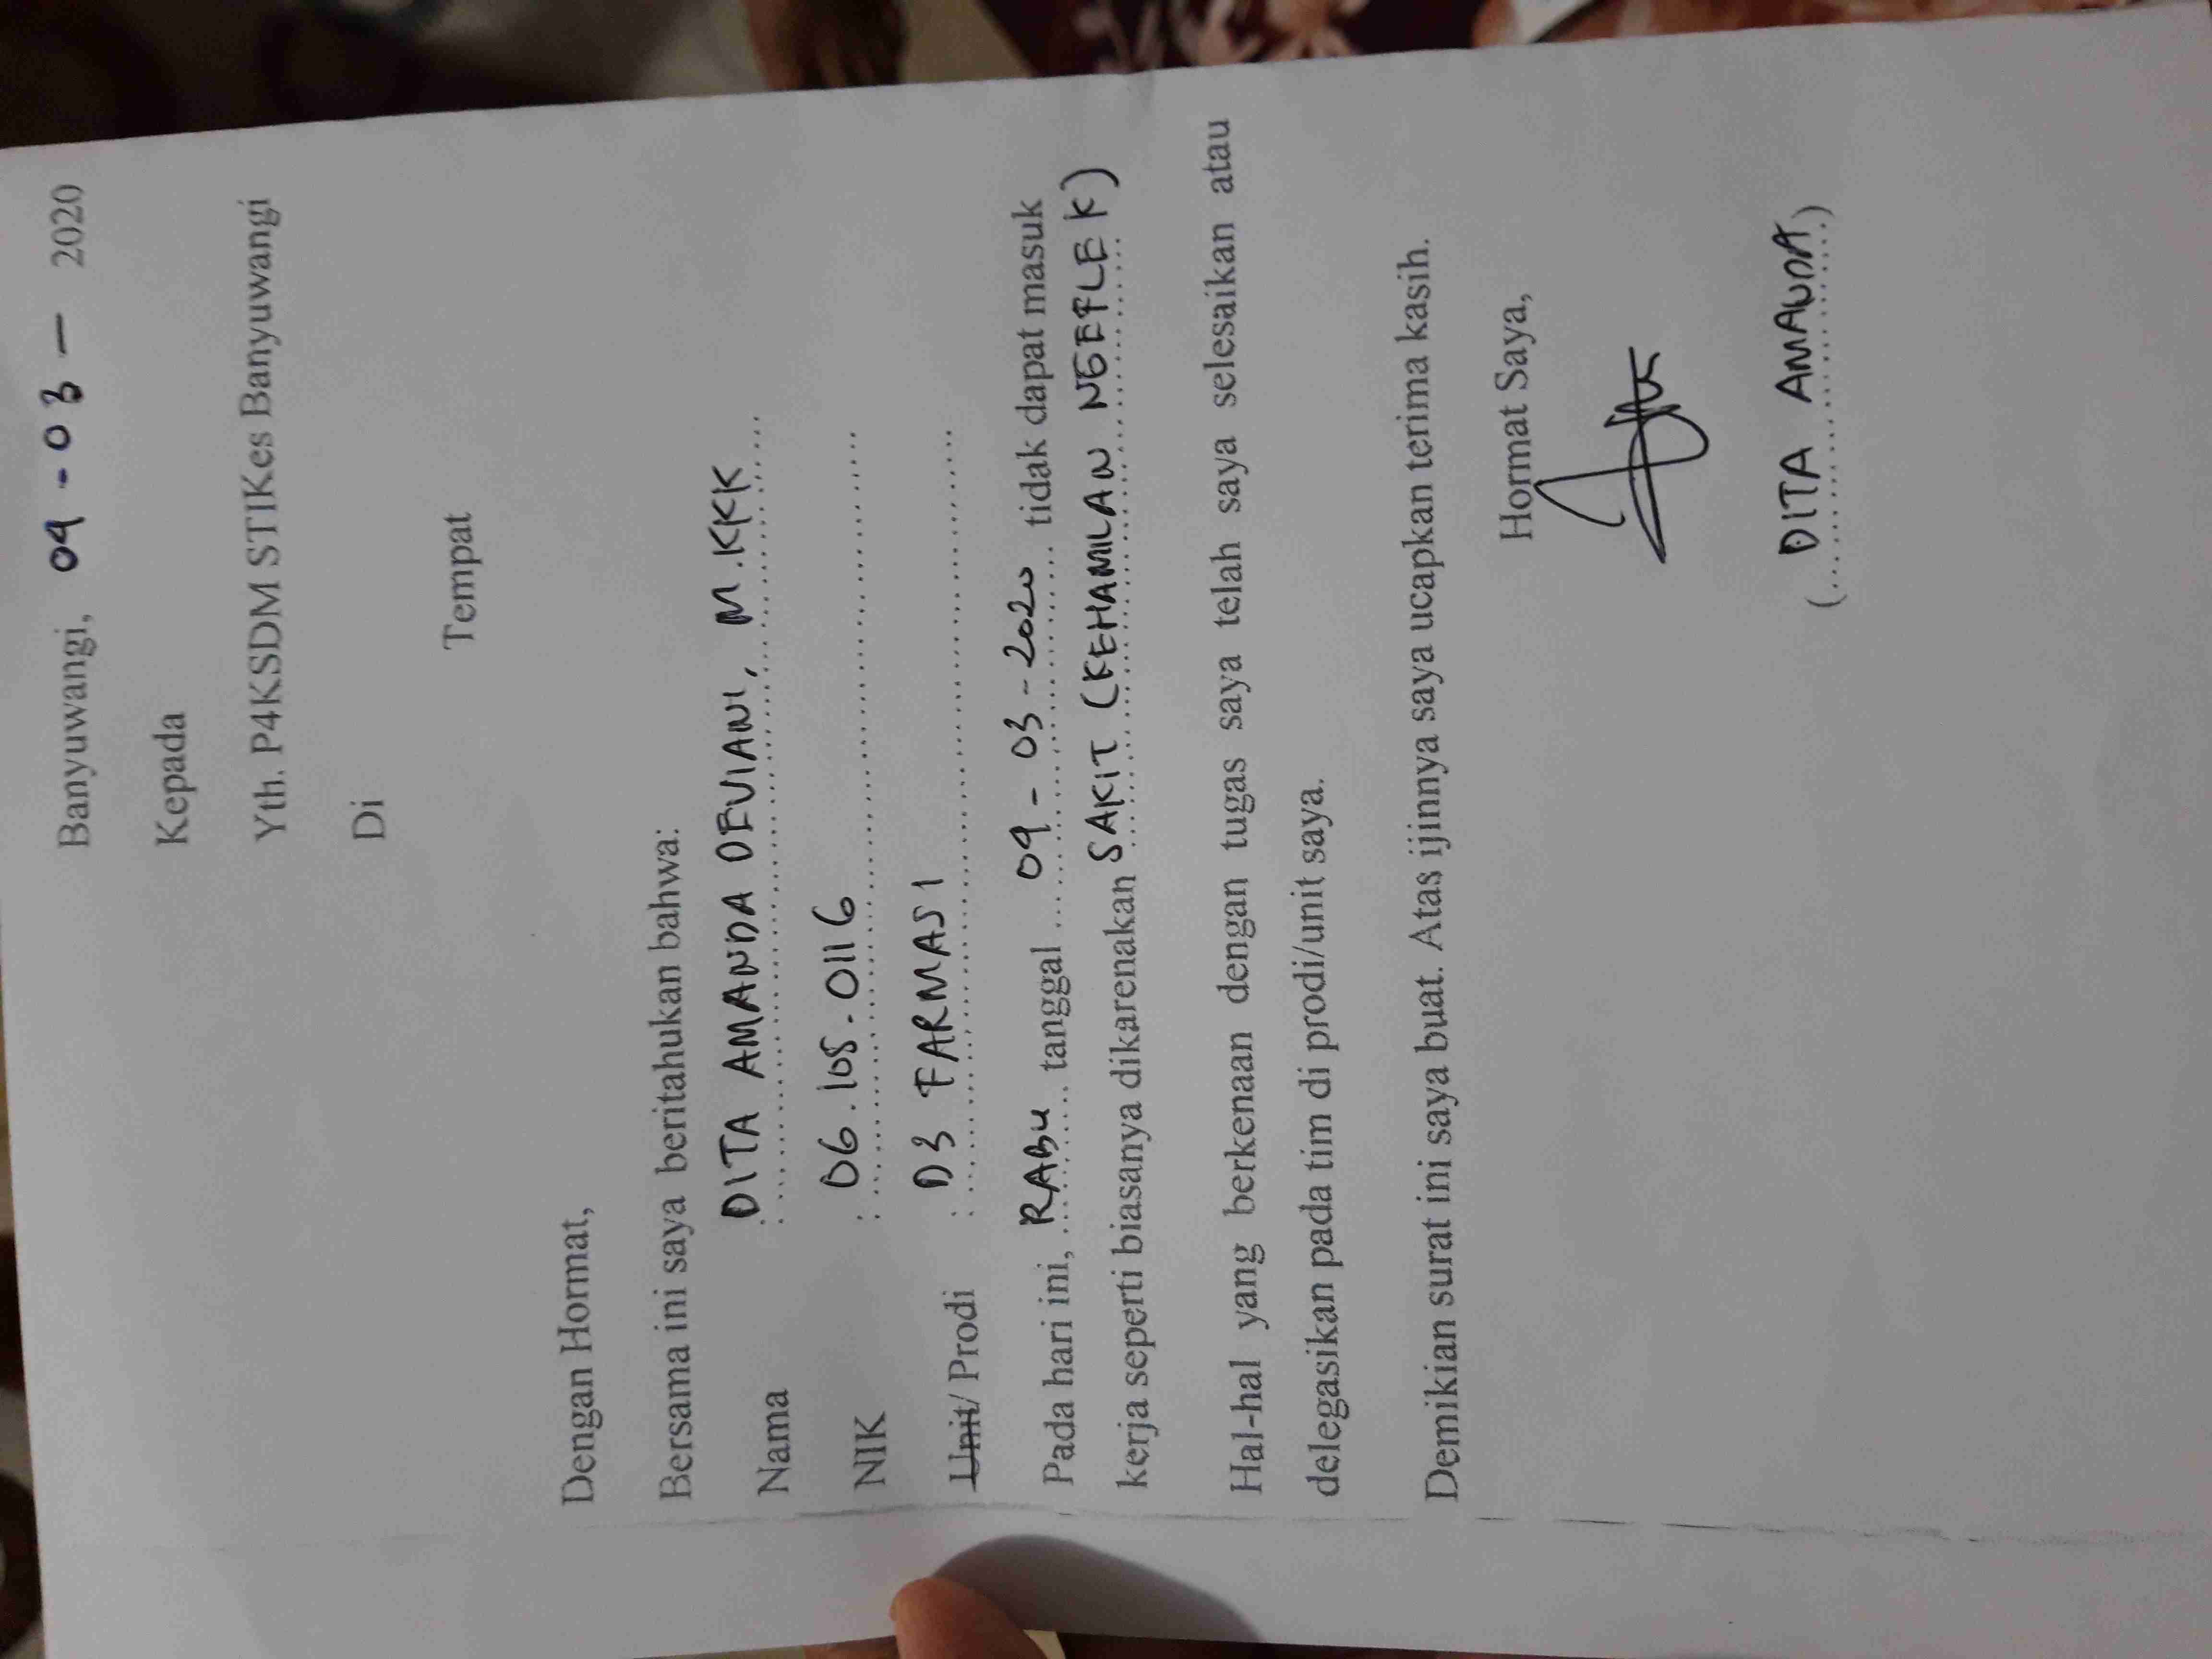 Banyuwangi, 04 - 03 - 2020
Kepada
Yth. P4KSDM STIKes Banyuwangi
Di
Tempat
Dengan Hormat,
Bersama ini saya beritahukan bahwa:
Nama : DITA AMANDA DEVIANI, M.KKK
NIK : 06.105.0116
Unit/ Prodi : D3 FARMASI
Pada hari ini, RABU tanggal 04 - 03 - 2020 tidak dapat masuk
kerja seperti biasanya dikarenakan SAKIT (KEHAMILAN NGEFLEK)
Hal-hal yang berkenaan dengan tugas saya telah saya selesaikan atau
delegasikan pada tim di prodi/unit saya.
Demikian surat ini saya buat. Atas ijinnya saya ucapkan terima kasih.
Hormat Saya,
(DITA AMANDA)